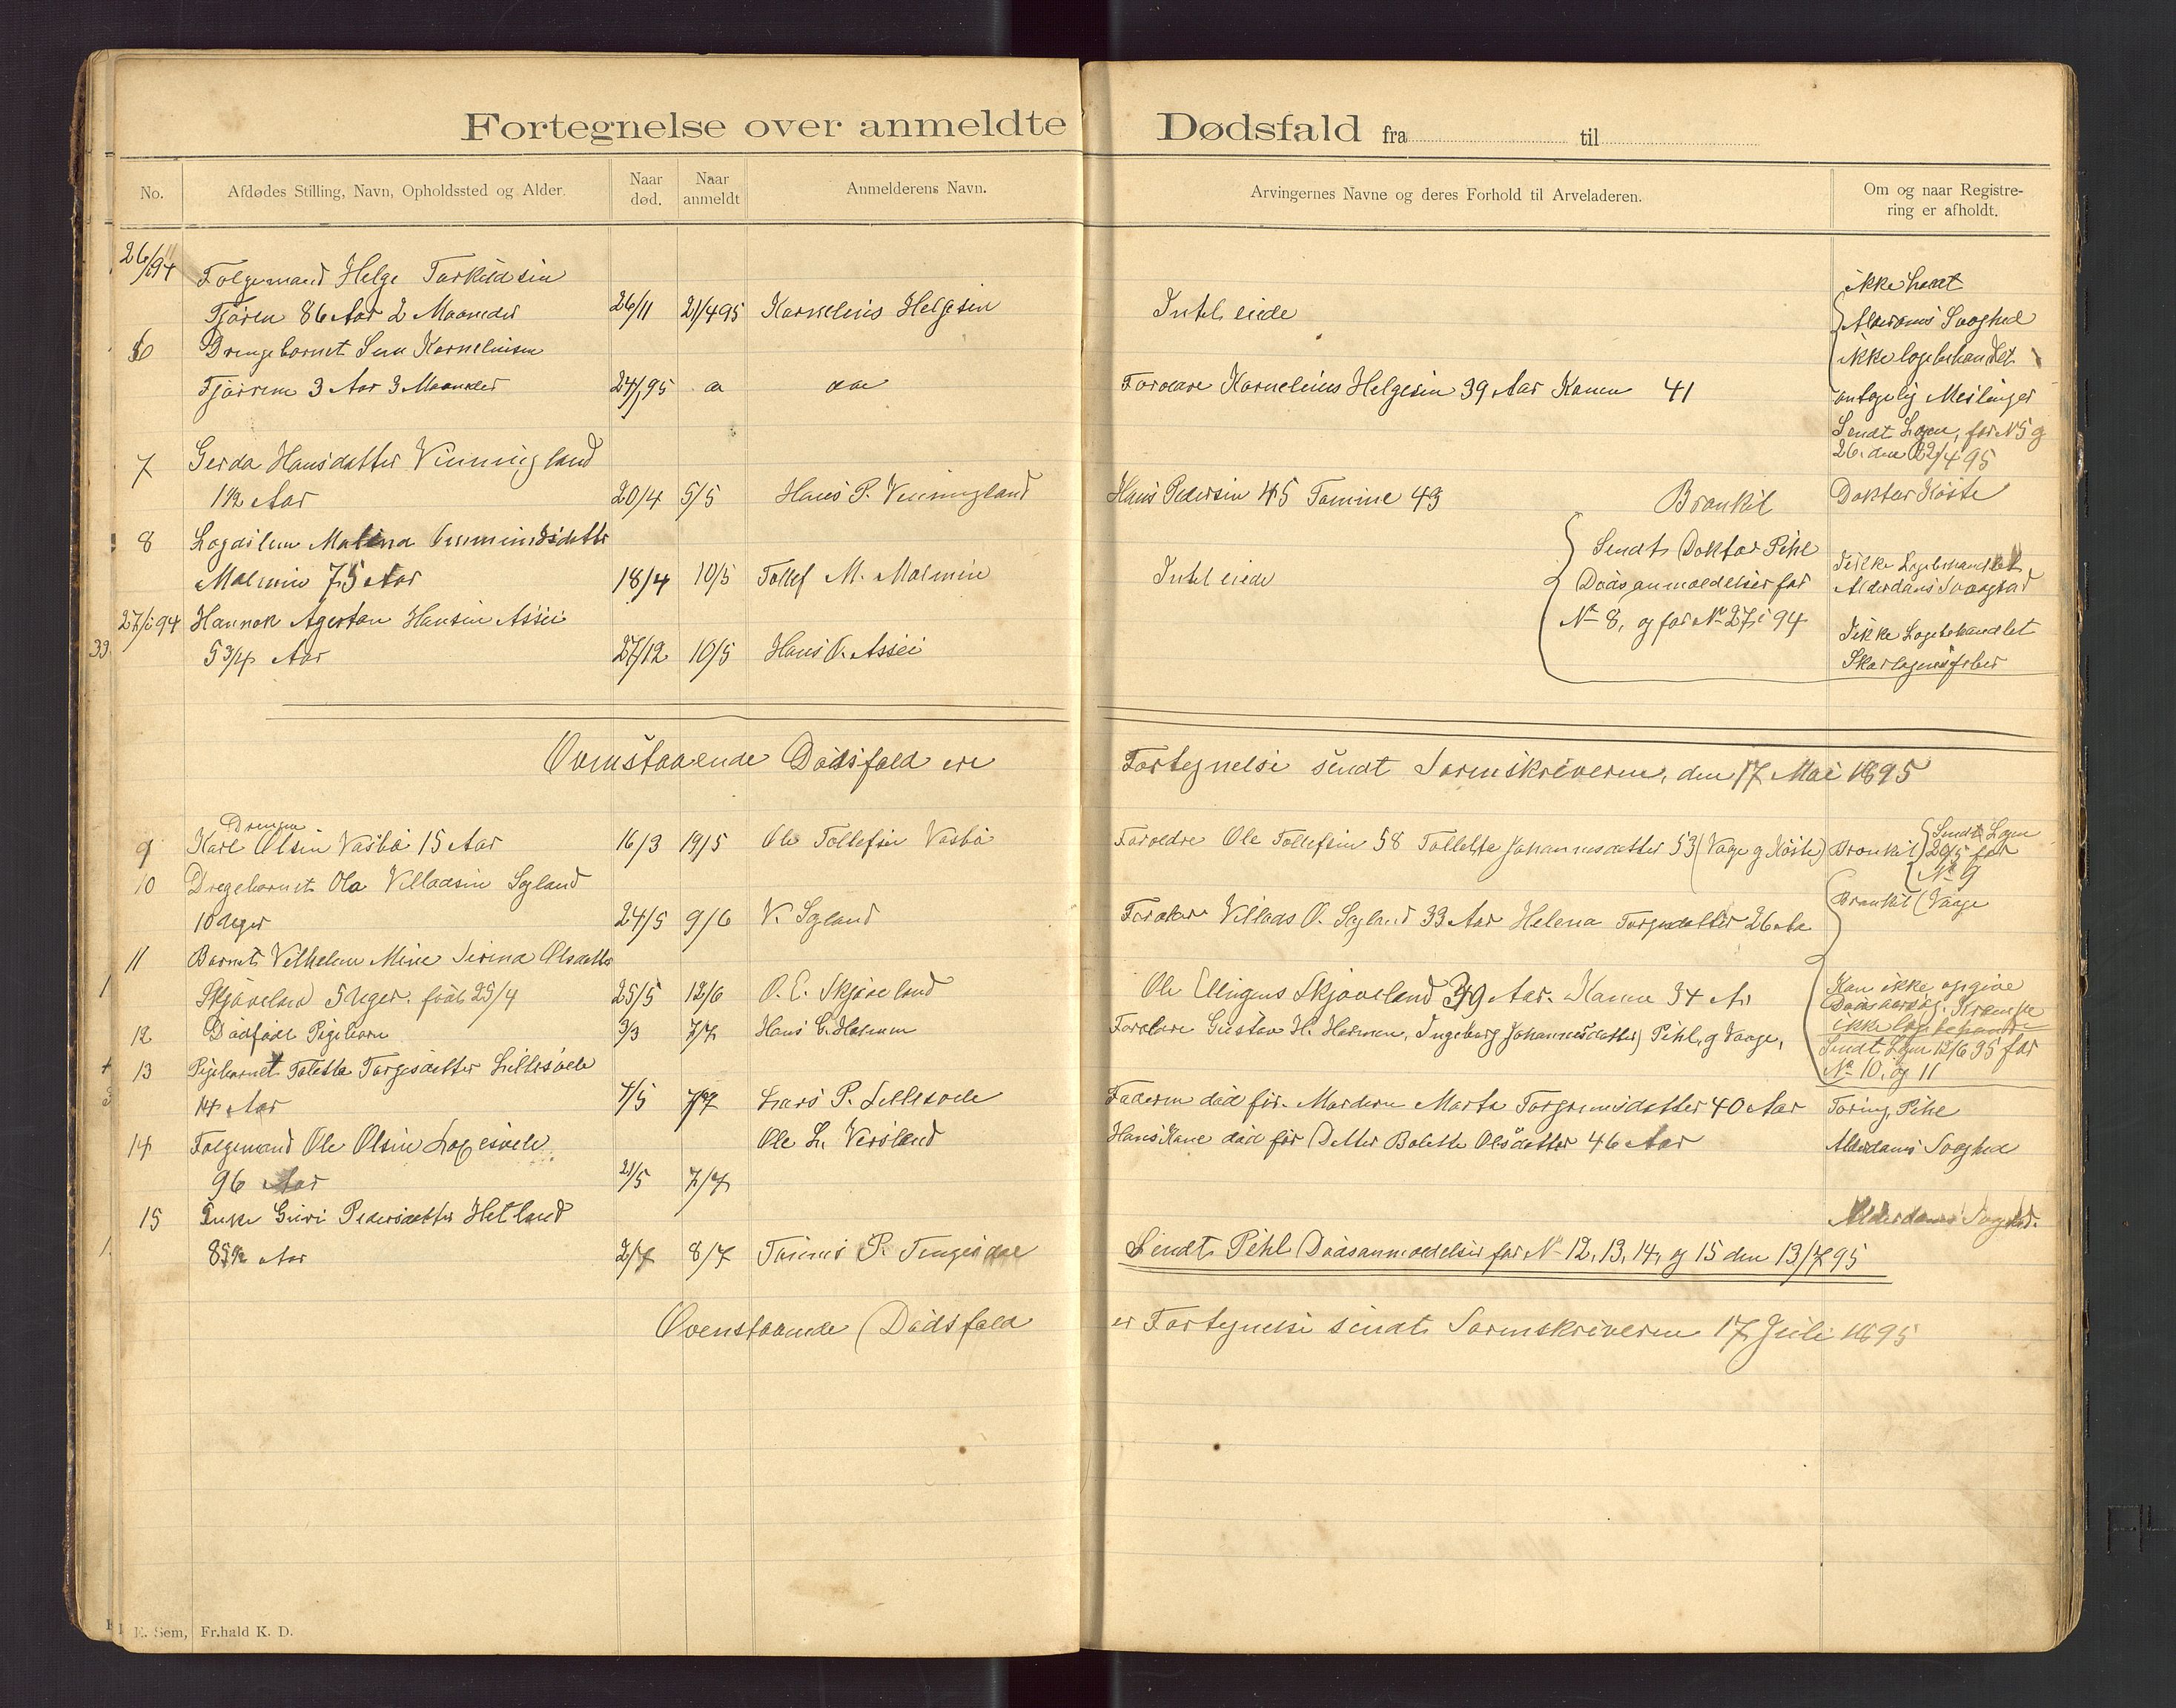 Fortegnelse over anmeldte Dødsfald fra til
No.
Afdødes Stilling, Navn, Opholdssted og Alder.
Naar død.
Naar anmeldt
Anmelderens Navn.
Arvingernes Navne og deres Forhold til Arveladeren.
Om og naar Registre-
ring er afholdt.
26/94 Folgemand Helge Torkildsen
Tjören 86 Aar 2 Maaneder 26/11 21/4 95 Kornelius Helgesen Intet eiede
ikke havt
Alderdoms Svaghed
6 Drengebarnet Korneliusen
ikke lægebehandlet
Tjörren 3 Aar 3 Maaneder 24/1 95 Kornelius Helgesen 39 Aar Konen 41
antagelig Meslinger
Sendt Lægen, for N 5 og
26. den 22/4 95
7 Gerda Hansdatter Vinningland
1 1/2 Aar 20/4 5/5 Hans P. Vinningland Hans Pedersen 45 Tomine 43 Bronkit Doktor Köste
8 Malena Ommundsdatter
Malmin 75 Aar 18/4 10/5 Tollef M. Malmin Intet eiede
Sendt Doktor Pihl
Dödsanmeldelser for
N 8, og for N 27 i 94
Ikke Lægebehandlet
Alderdoms Svaghed
27/i 94 Hannok Agerton Hansen Assei
5 3/4 Aar 27/12 10/5 Hans O. Assei
Ikke Lægebehandlet
Skarlagensfeber
33
Ovenstaaende Dödsfald ere Fortegnelse sendt Sorenskriveren, den 17 Mai 1895
Drengen
9 Karl Olsen Vasbö 15 Aar 16/3 19/5 Ole Tollefsen Vasbö Foreldre Ole Tollefsen 58 Tollette Johannesdatter 53 (Vaage og Köste) Bronkit
Sendt Lægen
20/5 for
N 9
10 Drengebarnet Ola Villadsen Sogland
10 Uger 24/5 9/6 V. Sogland Villads O. Sogland 33 Aar Helena Torgersdatter 26 Aar Bronkit (Vaage
11 Barnet Vilhelm Mine Serina Olsdatter
Skjöveland 5 Uger. född 25/4 25/5 12/6 O. E. Skjöveland Ole Ellingsen Skjöveland 39 Aar. Konen 34 Ar
Kan ikke opgive
Dödsaarsag. Krampe
ikke lægebehandl
Sendt Lægen 12/6 95 for
N 10. og 11
12 Dödfödt Pigebarn 3/3 7/7 Hans G. Holmen Foreldre Gustav H. Holmen, Ingeborg Johannesdatter) Pihl, og Vaage,
13 Pigebarnet Toletta Torgersdatter Lillesvele
14 Aar 7/5 7/7 Lars P. Lillesvele Faderen död för. Moderen Marta Torgrimsdatter 40 Aar Töring, Pihl
14 Folgemand Ole Olsen
96 Aar 21/5 7/7 Ole L. Versland Hans Kone död för Datter Bolette Olsdatter 46 Aar Alderdoms Svaghed
15 Enke Guri Pedersdatter Hetland
Aar 2/7 8/7 Tönnes P. Tengesdal
Alderdoms Svaghed.
Sendt Pihl Dödsanmeldelser for N 12, 13, 14, og 15 den 13/7 95
Ovenstaaende Dödsfald er Fortegnelse sendt Sorenskriveren 17 Juli 1895
E. Sem, Fr.hald K. D.